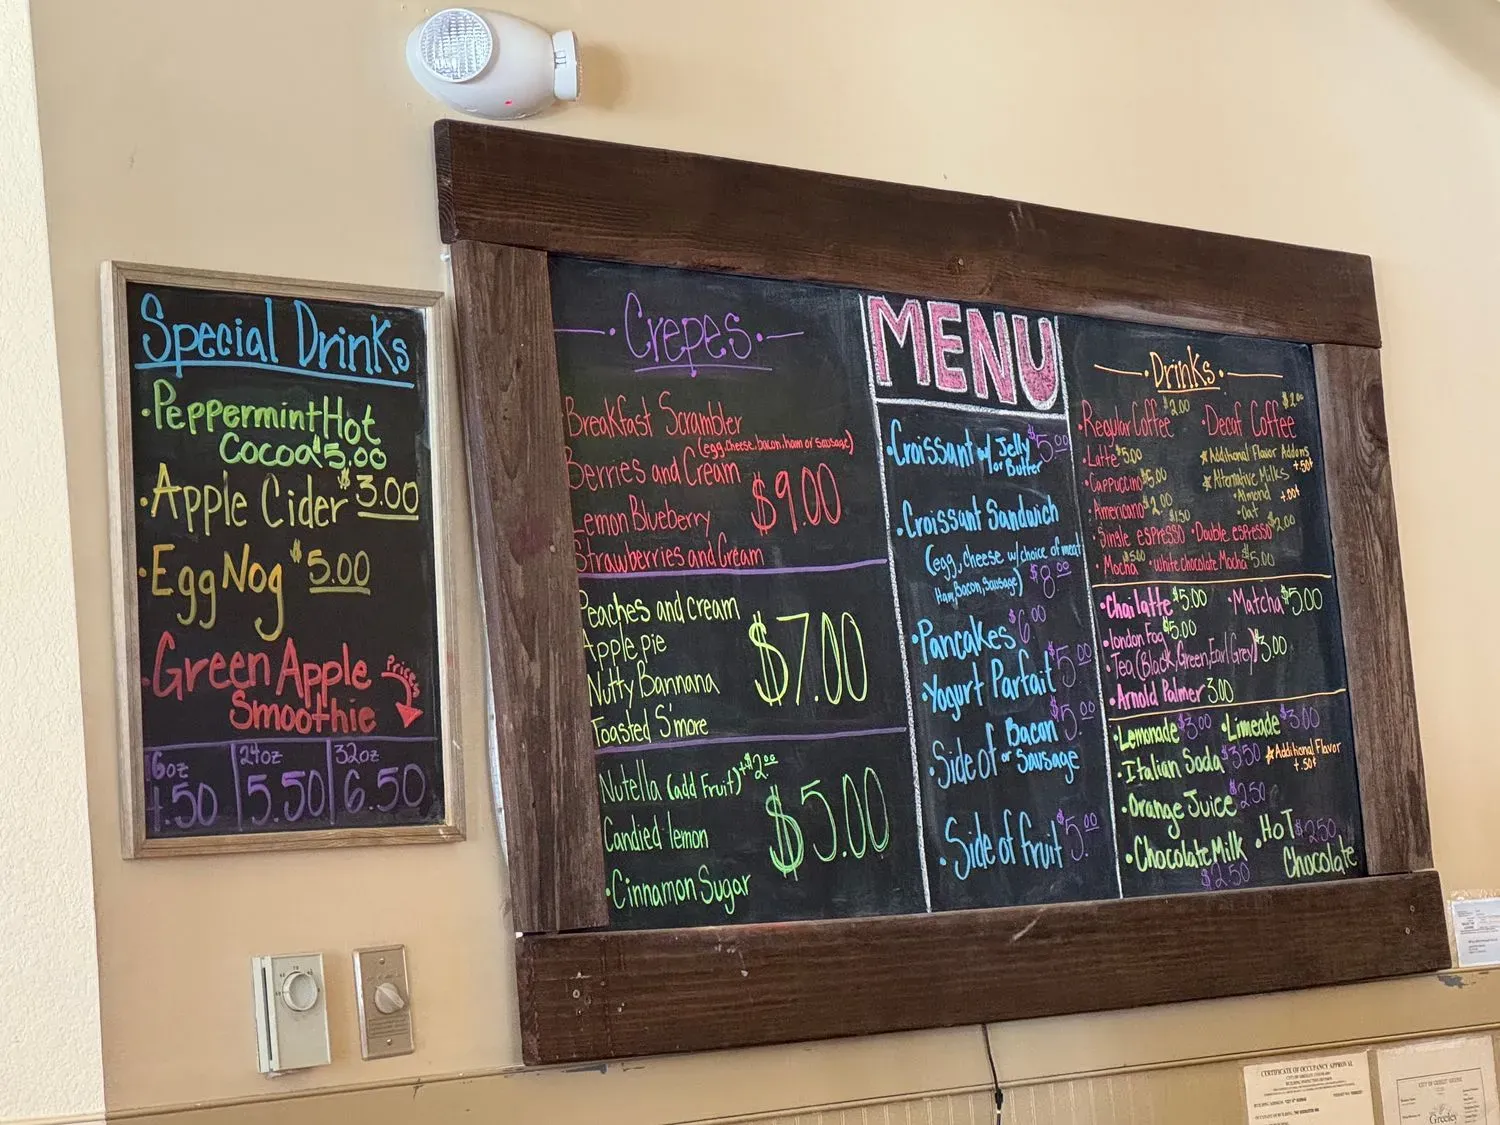 Special Drinks
·Peppermint Hot
Cocoa $5.00
·Apple Cider $3.00
·Egg Nog $5.00
·Green Apple
Smoothie
Prices
16oz 24oz 32oz
4.50 5.50 6.50
MENU
·Crepes·
Breakfast Scrambler
(egg, cheese, bacon, ham or sausage)
Berries and Cream
Lemon Blueberry
Strawberries and Cream
$9.00
Peaches and cream
Apple pie
Nutty Bannana
Toasted S'more
$7.00
Nutella (add Fruit) +$2.00
Candied lemon
·Cinnamon Sugar
$5.00
·Croissant w/ Jelly or Butter $5.00
·Croissant Sandwich
(egg, cheese w/choice of meat
Ham, Bacon, Sausage) $8.00
·Pancakes $6.00
·Yogurt Parfait $5.00
·Side of Bacon or Sausage $5.00
·Side of fruit $5.00
·Drinks·
·Regular Coffee $2.00 ·Decaf Coffee $2.00
·Latte $5.00
·Cappuccino $5.00
·Americano $2.00
☆Additional Flavor Addons +.50¢
☆Alternative Milks
·Almond
·Oat
·Single espresso $1.50 ·Double espresso $2.00
·Mocha $5.00 ·White Chocolate Mocha $5.00
·Chai latte $5.00 ·Matcha $5.00
·london Fog $5.00
·Tea (Black, Green, Earl Grey) $3.00
·Arnold Palmer 3.00
·Lemonade $3.00 ·Limeade $3.00
·Italian Soda $3.50 ☆Additional Flavor
+.50¢
·Orange Juice $2.50
·Chocolate Milk $2.50
·Hot Chocolate $2.50
CERTIFICATE OF OCCUPANCY APPROVAL
CITY OF GREELEY, COLORADO
CITY OF GREELEY
Greeley